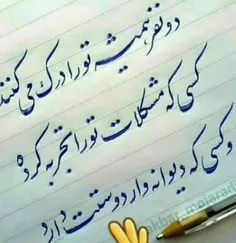 دو نفر همیشه تو را درک می کنند
کسی که مشکلات تو را تجربه کرده
و کسی که دیوانه وار دوستت دارد